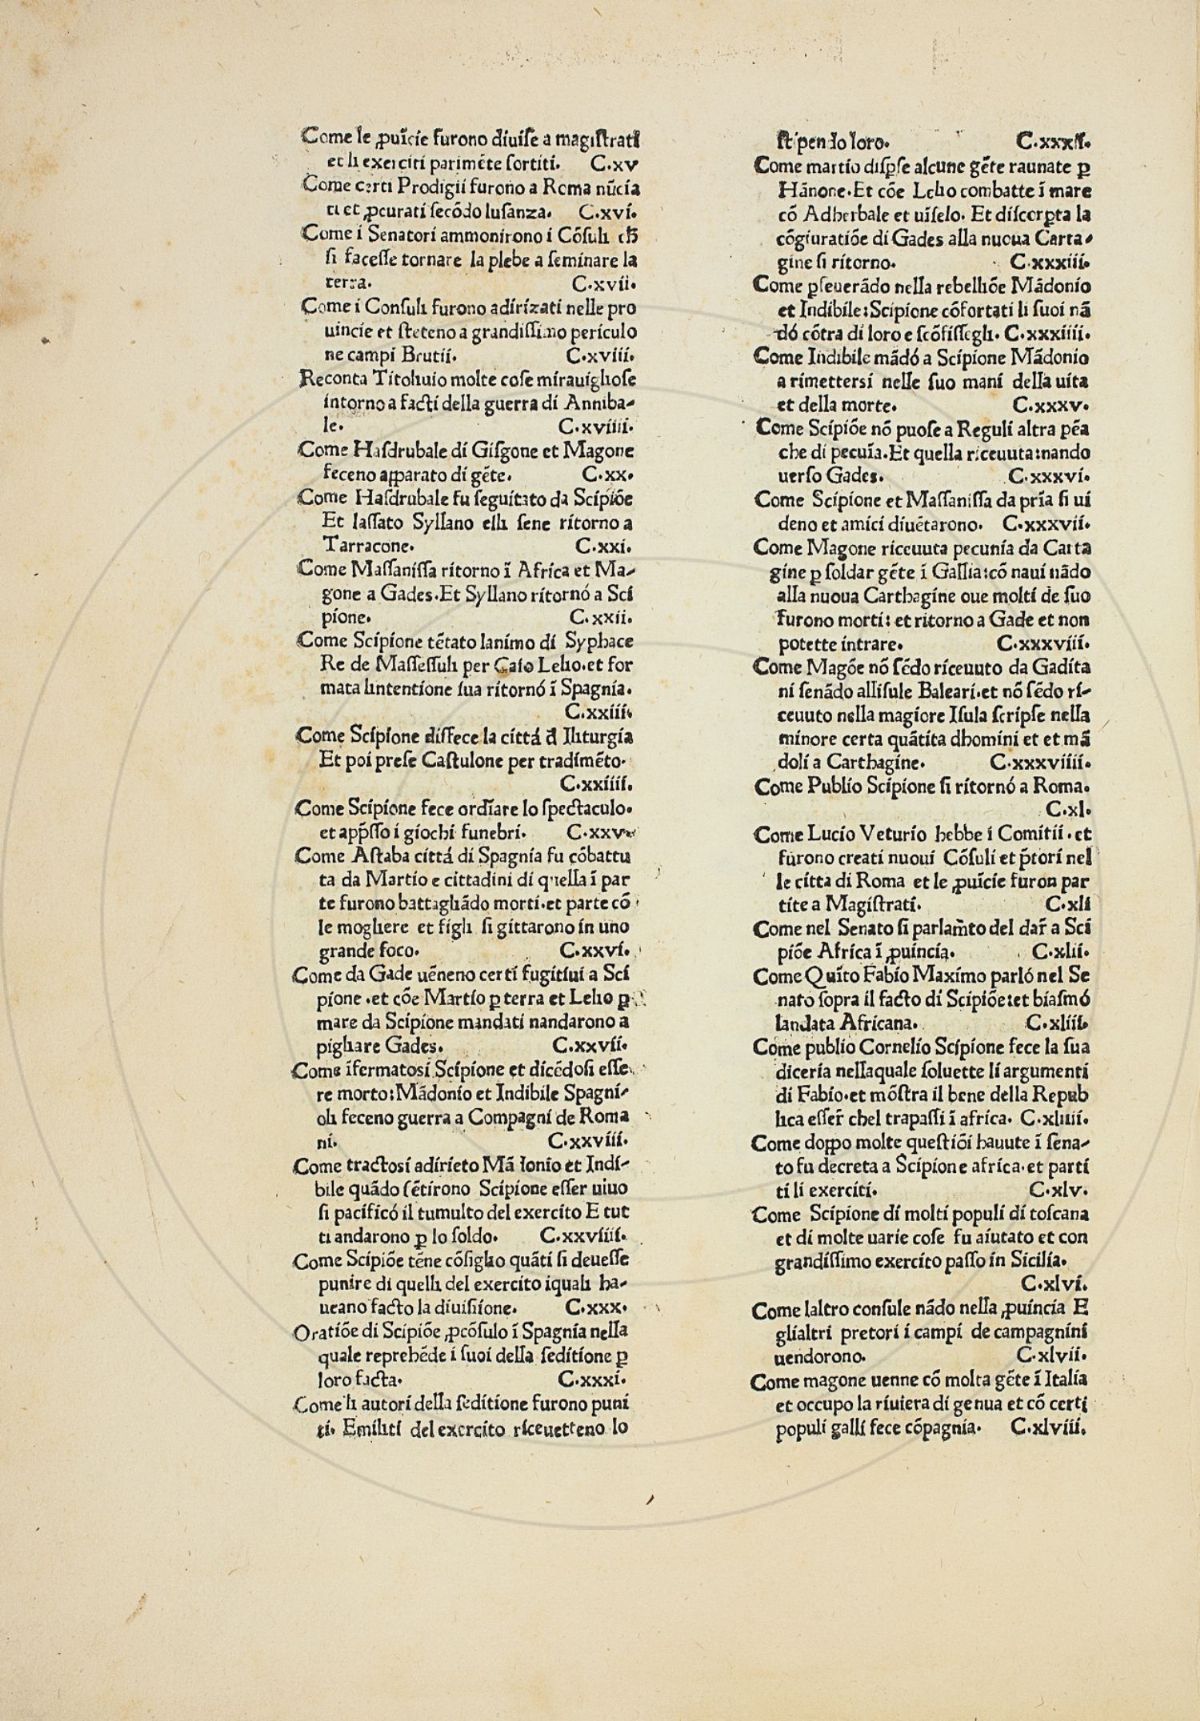 Come le ꝓuīcie furono diuiſe a magiſtrati
et li exerciti parimēte ſortiti. C.xv
Come certi Prodigii furono a Roma nūcia
ti et ꝓcurati ſecōdo luſanza. C.xvi.
Come i Senatori ammonirono i Cōſuli ch̄
ſi faceſſe tornare la plebe a ſeminare la
terra. C.xvii.
Come i Conſuli furono adirizati nelle pro
uincie et ſteteno a grandiſſimo periculo
ne campi Brutii. C.xviii.
Reconta Titoliuio molte coſe mirauighoſe
intorno a facti della guerra di Anniba-
le. C.xviiii.
Come Haſdrubale di Giſgone et Magone
feceno apparato di gēte. C.xx.
Come Haſdrubale fu ſeguitato da Scipiōe
Et laſſato Syllano elli ſene ritorno a
Tarracone. C.xxi.
Come Maſſaniſſa ritorno ī Africa et Ma-
gone a Gades.Et Syllano ritornó a Sci
pione. C.xxii.
Come Scipione tētato lanimo di Syphace
Re de Maſſeſſuli per Caio Lelio.et for
mata lintentione ſua ritornó ī Spagnia.
C.xxiii.
Come Scipione diſfece la cittá đ Iliturgia
Et poi preſe Caſtulone per tradimēto.
C.xxiiii.
Come Scipione fece ordīare lo ſpectaculo.
et app̄ſſo i giochi funebri. C.xxv.
Come Aſtaba cittá di Spagnia fu cōbattu
ta da Martio e cittadini di quella ī par
te furono battagliādo morti.et parte cō
le mogliere et figli ſi gittarono in uno
grande foco. C.xxvi.
Come da Gade uēneno certi fugitiui a Sci
pione .et cōe Martio ꝑ terra et Lelio ꝑ
mare da Scipione mandati nandarono a
pigliare Gades. C.xxvii.
Come īfermatoſi Scipione et dicēdoſi eſſe
re morto:Mādonio et Indibile Spagni-
oli feceno guerra a Compagni de Roma
ni. C.xxviii.
Come tractoſi adirieto Mā donio et Indi-
bile quādo ſētirono Scipione eſſer uiuo
ſi pacificó il tumulto del exercito E tut
ti andarono ꝑ lo ſoldo. C.xxviiii.
Come Scipiōe tēne cōſiglio quāti ſi deueſſe
punire di quelli del exercito iquali ha-
ueano facto la diuiſione. C.xxx.
Oratiōe di Scipiōe ꝓcōſulo ī Spagnia nella
quale reprehēde i ſuoi della ſeditione ꝑ
loro facta. C.xxxi.
Come li autori della ſeditione furono puni
ti. Emiliti del exercito riceuetteno lo
ſtipendo loro. C.xxxii.
Come martio diſpſe alcune gēte raunate ꝑ
Hānone.Et cōe Lelio combatte ī mare
cō Adherbale et uīſelo. Et diſcoꝑta la
cōgiuratiōe di Gades alla nuoua Carta-
gine ſi ritorno. C.xxxiii.
Come ꝑſeuerādo nella rebelliōe Mādonio
et Indibile:Scipione cōfortati li ſuoi nā
dó cōtra di loro e ſcōfiſſegli. C.xxxiiii.
Come Indibile mādó a Scipione Mādonio
a rimetterſi nelle ſuo mani della uita
et della morte. C.xxxv.
Come Scipiōe nō puoſe a Reguli altra pēa
che di pecuīa.Et quella riceuuta:nando
uerſo Gades. C.xxxvi.
Come Scipione et Maſſaniſſa da pria ſi ui
deno et amici diuētarono. C.xxxvii.
Come Magone riceuuta pecunia da Carta
gine ꝑ ſoldar gēte ī Gallia:cō naui nādo
alla nuoua Carthagine oue molti de ſuo
furono morti: et ritorno a Gade et non
potette intrare. C.xxxviii.
Come Magōe nō ſēdo riceuuto da Gadita
ni ſenādo alliſule Baleari.et nō ſēdo ri-
ceuuto nella magiore Iſula ſcripſe nella
minore certa quātita dhomini et et mā
doli a Carthagine. C.xxxviiii.
Come Publio Scipione ſi ritornó a Roma.
C.xl.
Come Lucio Veturio hebbe i Comitii.et
furono creati nuoui Cōſuli et p̄tori nel
le citta di Roma et le ꝓuīcie furon par
tite a Magiſtrati. C.xli
Come nel Senato ſi parlam̄to del dar̄ a Sci
piōe Africa ī ꝓuincia. C.xlii.
Come Quīto Fabio Maximo parló nel Se
nato ſopra il facto di Scipiōe:et biaſmó
landata Africana. C.xliii.
Come publio Cornelio Scipione fece la ſua
diceria nellaquale ſoluette li argumenti
di Fabio.et mōſtra il bene della Repub
lica eſſer̄ chel trapaſſi ī africa. C.xliiii.
Come doppo molte queſtiōi hauute ī ſena-
to fu decreta a Scipione africa.et parti
ti li exerciti. C.xlv.
Come Scipione di molti populi di toſcana
et di molte uarie coſe fu aiutato et con
grandiſſimo exercito paſſo in Sicilia.
C.xlvi.
Come laltro conſule nādo nella ꝓuincia E
glialtri pretori i campi de campagnini
uendorono. C.xlvii.
Come magone uenne cō molta gēte ī Italia
et occupo la riuiera di genua et cō certi
populi galli fece cōpagnia. C.xlviii.